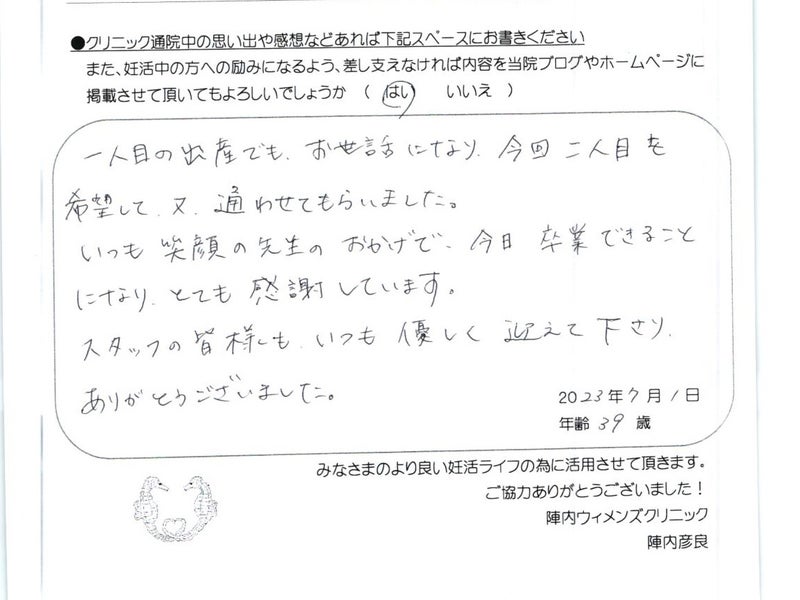 ●クリニック通院中の思い出や感想などあれば下記スペースにお書きください
また、妊活中の方への励みになるよう、差し支えなければ内容を当院ブログやホームページに
掲載させて頂いてもよろしいでしょうか （ はい　いいえ ）
一人目の出産でも、お世話になり、今回二人目を
希望して、又、通わせてもらいました。
いつも笑顔の先生のおかげで、今日卒業できること
になり、とても感謝しています。
スタッフの皆様も、いつも優しく迎えて下さり、
ありがとうございました。
2023年7月1日
年齢 39 歳
みなさまのより良い妊活ライフの為に活用させて頂きます。
ご協力ありがとうございました！
陣内ウィメンズクリニック
陣内彦良